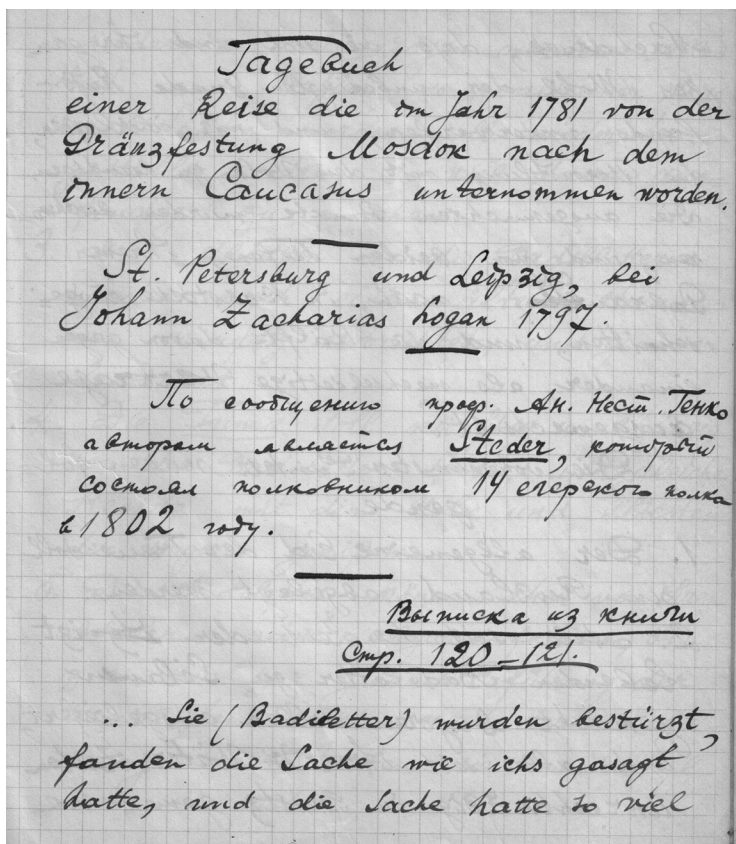 Tagebuch
einer Reise die im Jahr 1781 von der
Gränzfestung Mosdok nach dem
innern Caucasus unternommen worden.
St. Petersburg und Leipzig, bei
Johann Zacharias Logan 1797.
По сообщению проф. Ан. Нест. Генко
автором является Steder, который
состоял полковником 14 егерского полка
в 1802 году.
Выписка из книги
Стр. 120–121.
... Sie (Badiletter) wurden bestürzt,
fanden die Sache wie ichs gasagt
hatte, und die Sache hatte so viel